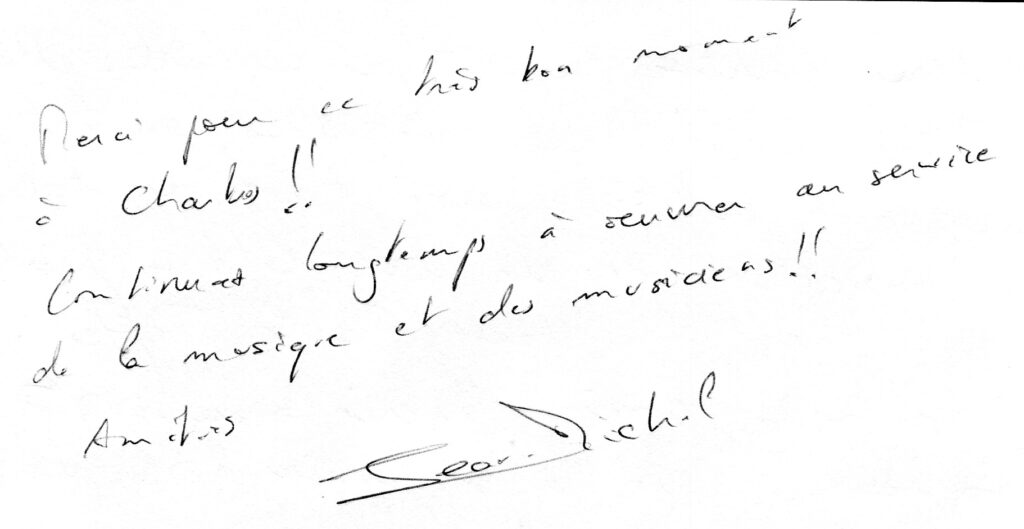 Merci pour ce très bon moment
à !!
Continuez longtemps à oeuvrer au service
de la musique et des musiciens !!
Amitiés
Jean-Michel